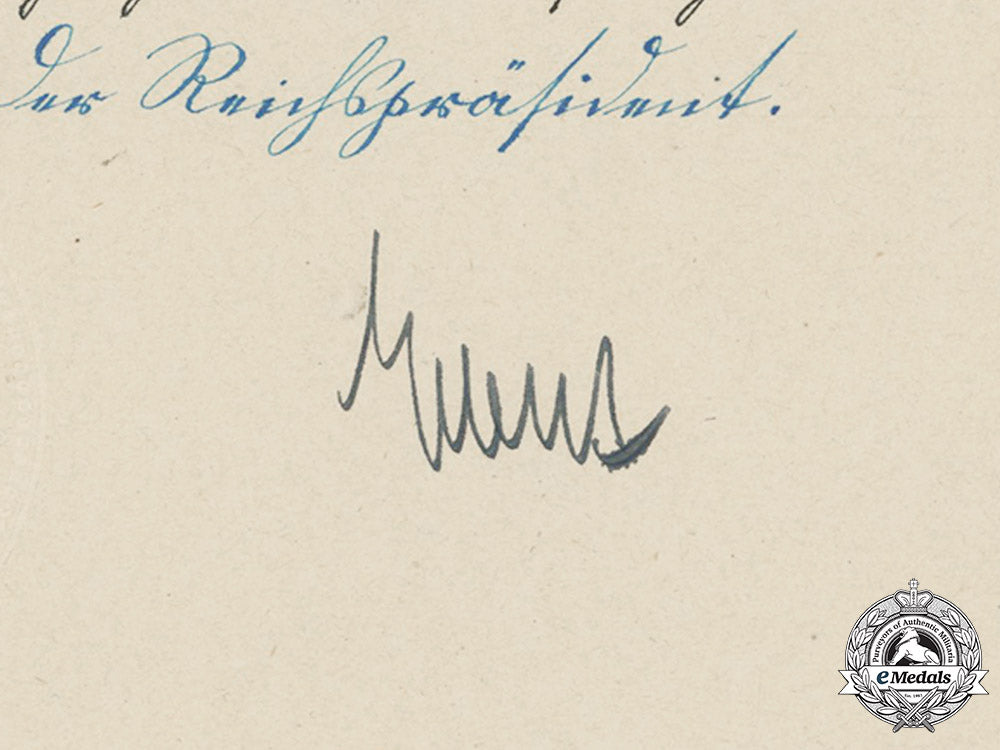 der Reichspräsident.
Purveyors of Authentic Militaria
eMedals